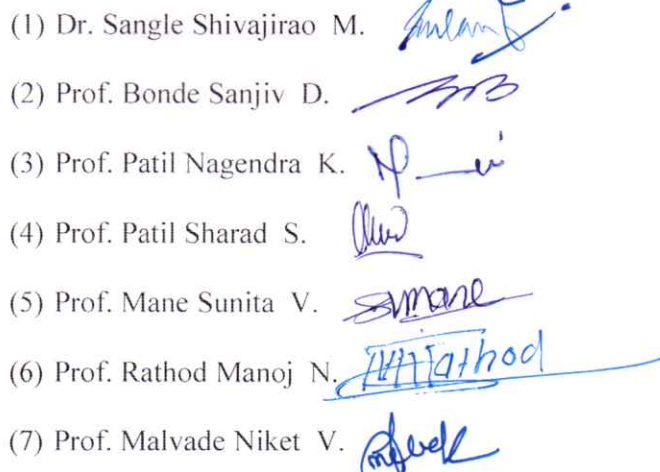 (1) Dr. Sangle Shivajirao M.
(2) Prof. Bonde Sanjiv D.
(3) Prof. Patil Nagendra K.
(4) Prof. Patil Sharad S.
(5) Prof. Mane Sunita V. SVmane
(6) Prof. Rathod Manoj N. MNRathod
(7) Prof. Malvade Niket V.